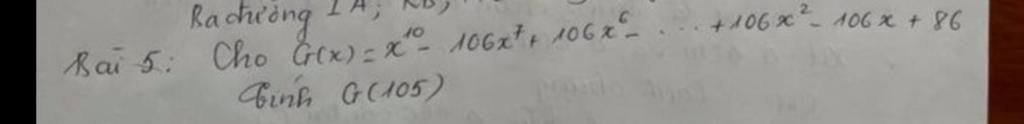 Ba đường IA; KB;
Bài 5: Cho G(x) = x¹⁰ - 106x⁷ + 106x⁶ - ... + 106x² - 106x + 86
Tính G(105)